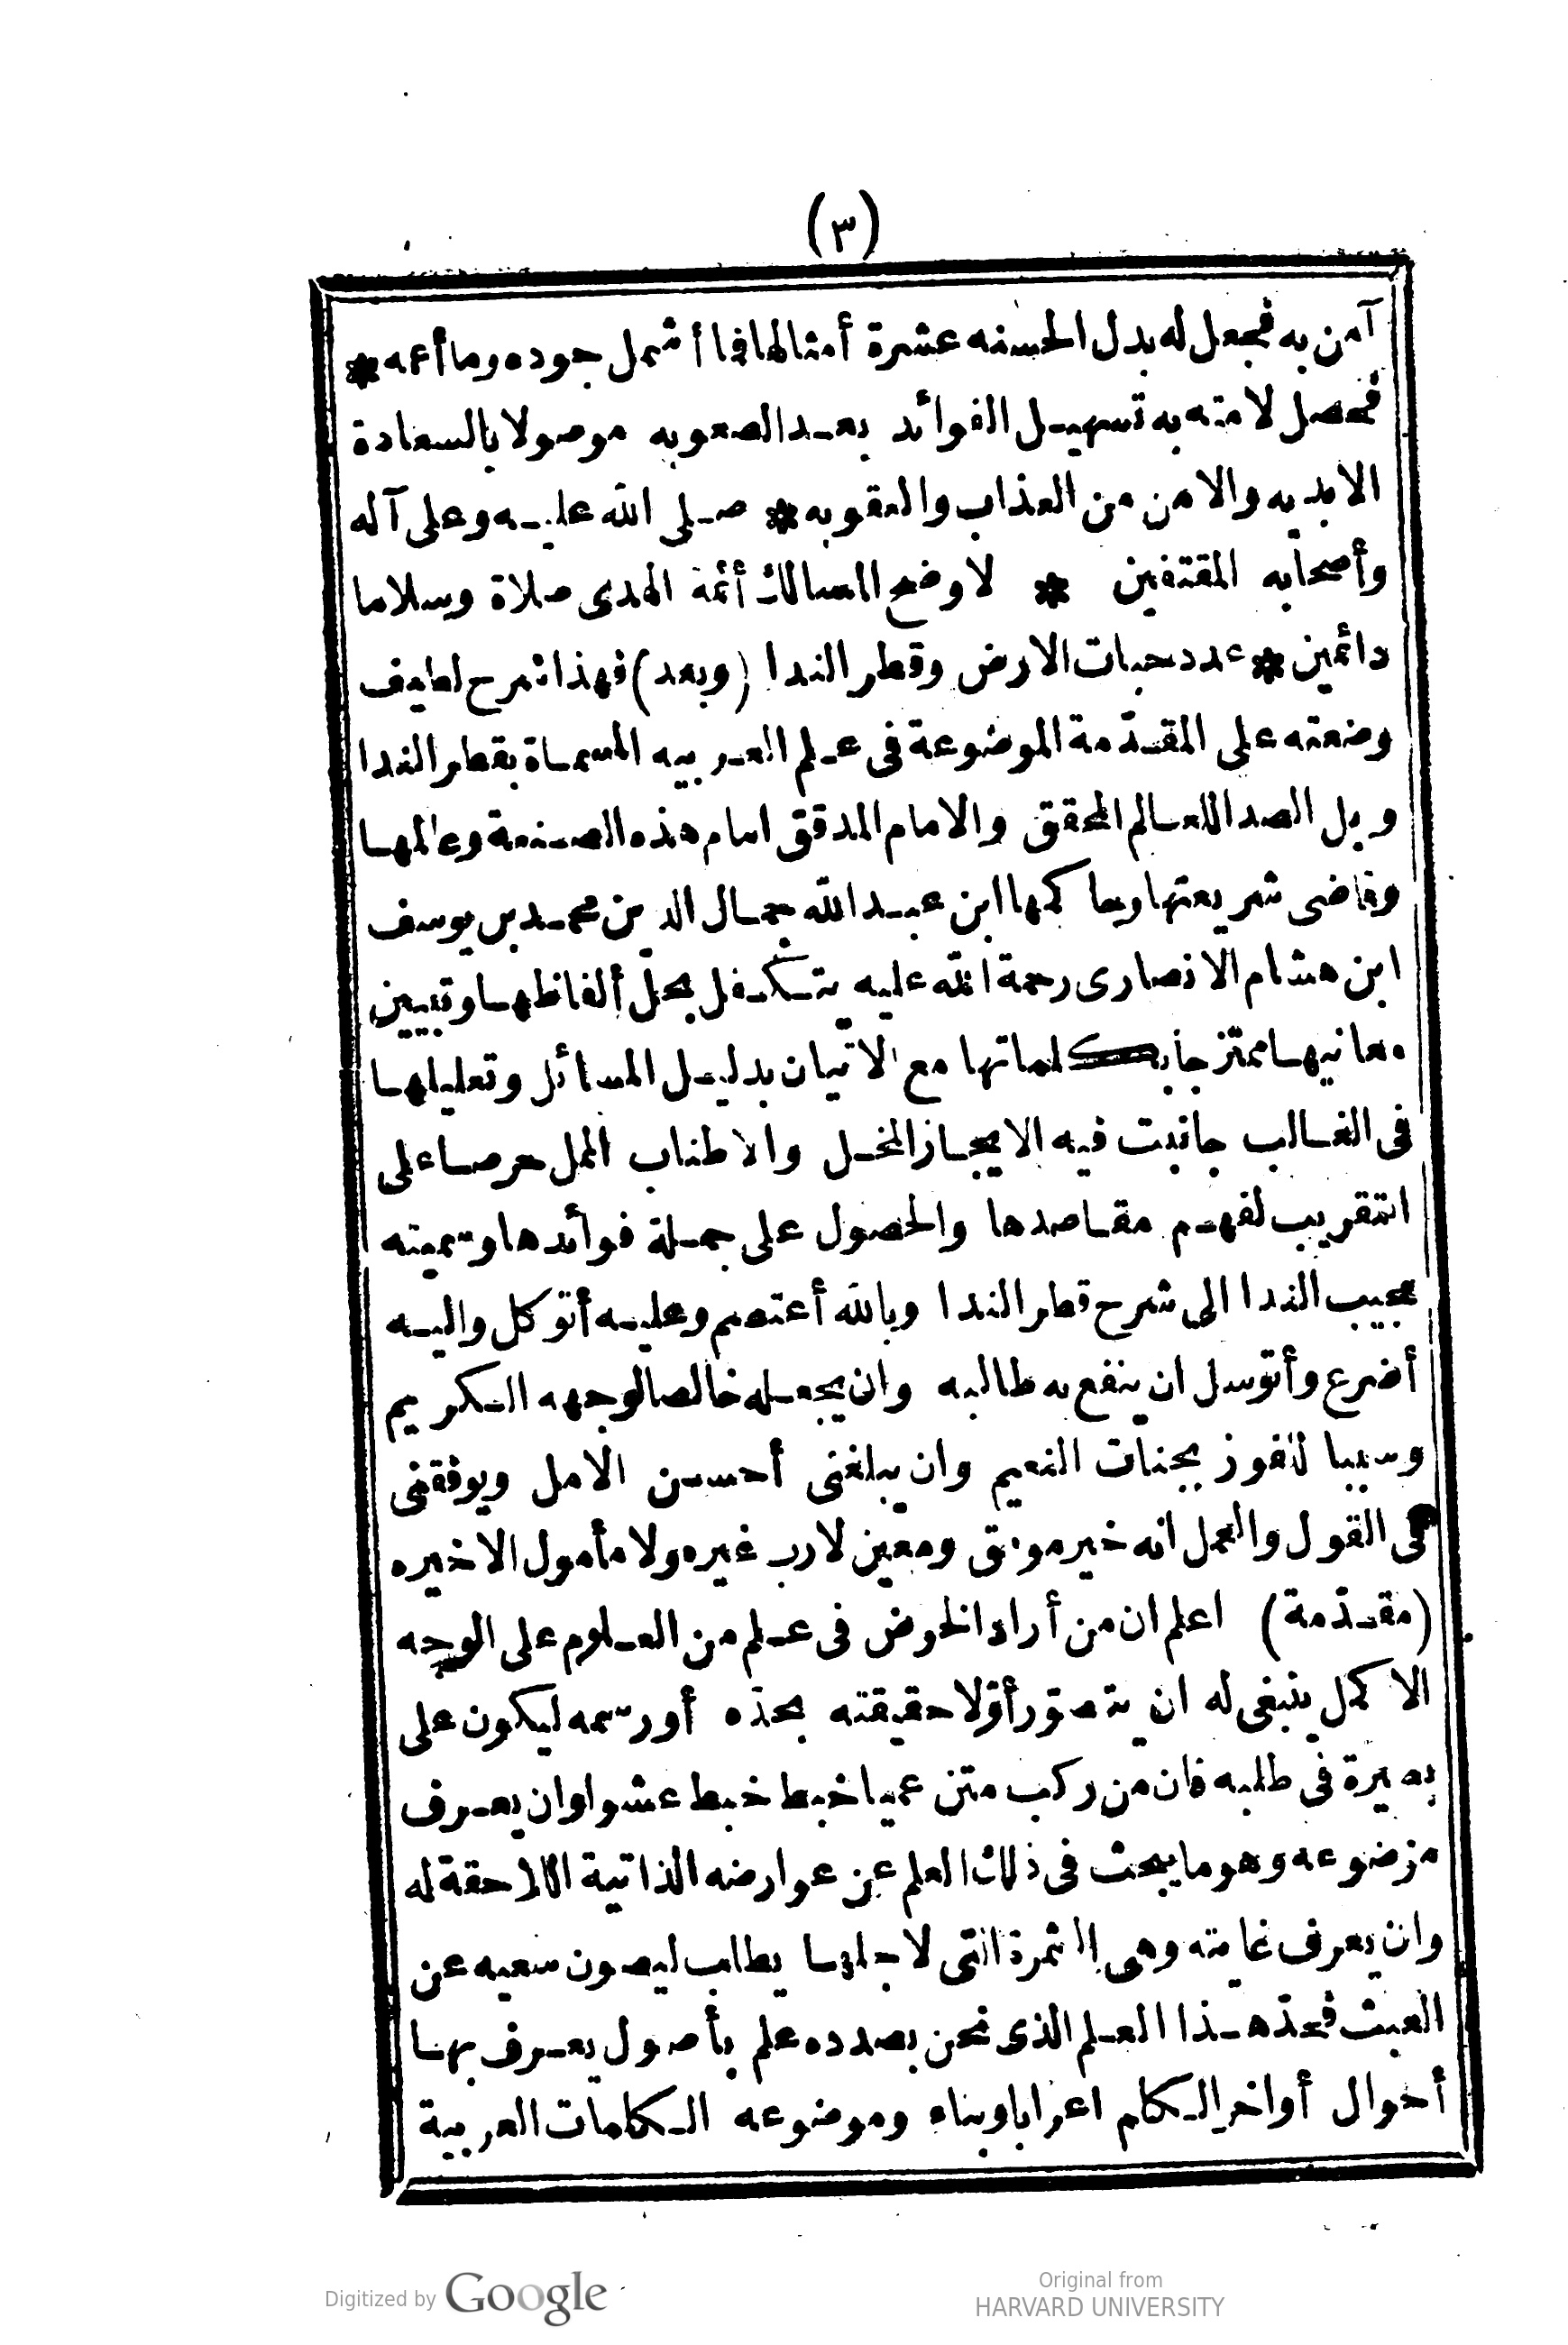 (٣)
آمن به فجعل له بدل الحسنه عشرة أمثالها فما أشمل جوده وما أعمه *
فحصل لامته به تسهيل الفوائد بعد الصعوبه موصولا بالسعادة
الابديه والامن من العذاب والعقوبه * صلى الله عليه وعلى آله
وأصحابه المقتفين * لاوضح المسالك أئمة الهدى صلاة وسلاما
دائمين * عدد حبات الارض وقطر الندا (وبعد) فهذا شرح لطيف
وضعته على المقدّمة الموضوعة فى علم العربيه المسماة بقطر الندا
وبل الصدا للعالم المحقق والامام المدقق امام هذه الصنعة وعالمها
وقاضى شريعتها وحاكمها ابن عبد الله جمال الدين محمد بن يوسف
ابن هشام الانصارى رحمة الله عليه يتكفل بحلّ ألفاظها وتبيين
معانيها ممتزجا بكلماتها مع الاتيان بدليل المسائل وتعليلها
فى الغالب جانبت فيه الايجاز المخل والاطناب الممل حرصا على
التقريب لفهم مقاصدها والحصول على جملة فوائدها وسميته
مجيب الندا الى شرح قطر الندا وبالله أعتصم وعليه أتوكل واليه
أضرع وأتوسل ان ينفع به طالبه وان يجعله خالصا لوجهه الكريم
وسببا للفوز بجنات النعيم وان يبلغنى أحسن الامل ويوفقنى
فى القول والعمل انه خير موفق ومعين لا رب غيره ولا مأمول الا خيره
(مقدّمة) اعلم ان من أراد الخوض فى علم من العلوم على الوجه
الاكمل ينبغى له ان يتصوّر أوّلا حقيقته بحدّه أو رسمه ليكون على
بصيرة فى طلبه فان من ركب متن عميا خبط خبط عشوا وان يعرف
موضوعه وهو ما يبحث فى ذلك العلم عن عوارضه الذاتية اللاحقة له
وان يعرف غايته وهى الثمرة التى لاجلها يطلب ليصون سعيه عن
العبث فحدّ هذا العلم الذى نحن بصدده علم بأصول يعرف بها
أحوال أواخر الكلم اعرابا وبناء وموضوعه الكلمات العربية
Digitized by Google
Original from
HARVARD UNIVERSITY